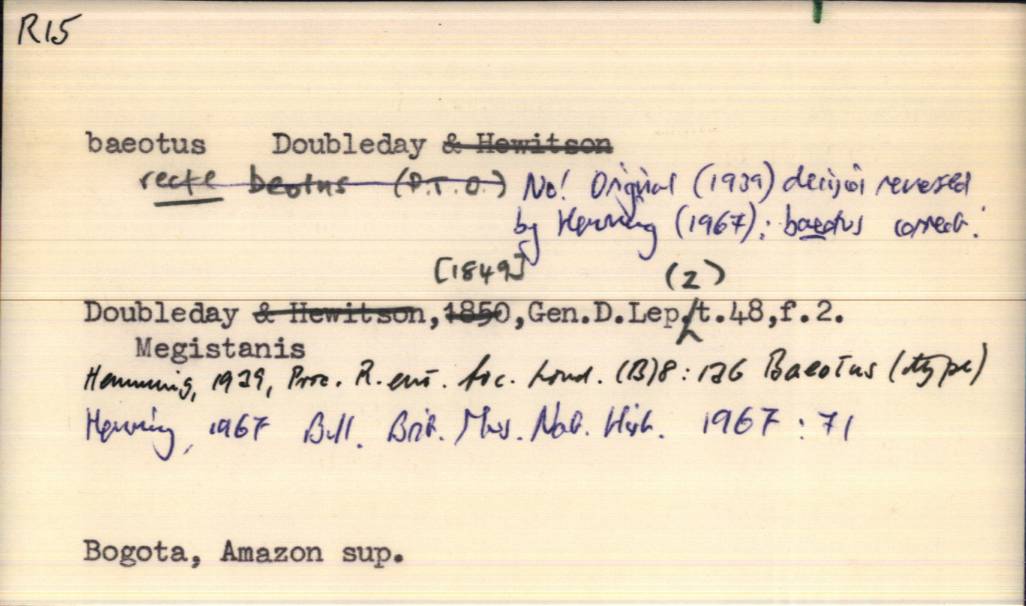 R15
baeotus Doubleday & Hewitson
recte beotus (P.T.O.) No! Original (1939) decision reversed
by Hemming (1967); baeotus correct.
[1849] (2)
Doubleday & Hewitson, 1850, Gen.D.Lep. t.48,f.2.
Megistanis
Hemming, 1939, Proc. R. ent. Soc. Lond. (B)8: 136 Baeotus (type)
Hemming, 1967 Bull. Brit. Mus. Nat. Hist. 1967 : 71
Bogota, Amazon sup.